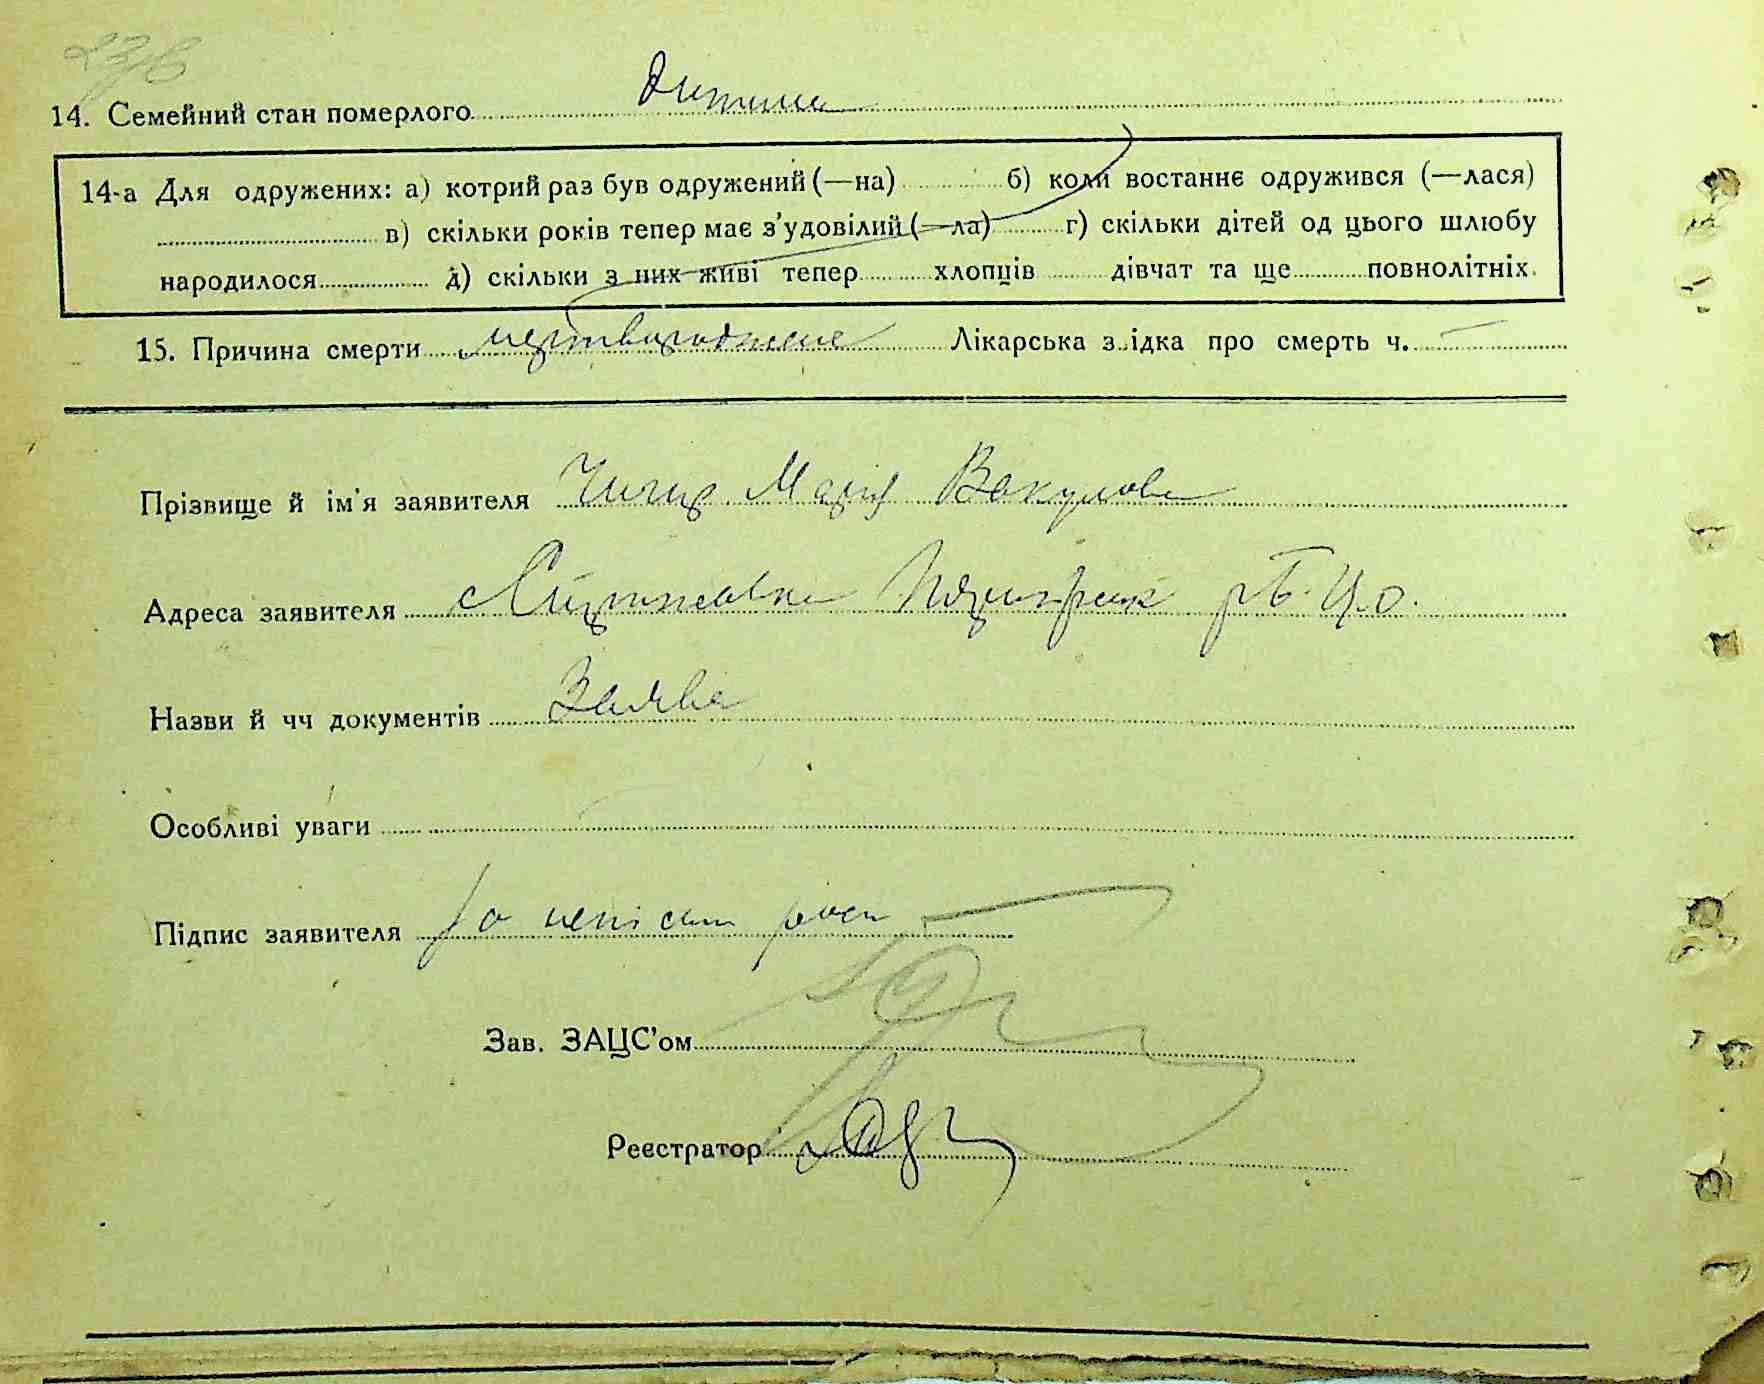 23в
14. Семейний стан померлого дитина
14-а Для одружених: а) котрий раз був одружений (—на) б) коли востаннє одружився (—лася)
в) скільки років тепер має з'удовілий (—ла) г) скільки дітей од цього шлюбу
народилося д) скільки з них живі тепер хлопців дівчат та ще повнолітніх.
15. Причина смерти мертворожд Лікарська з ідка про смерть ч. —
Прізвище й ім'я заявителя Марія Вакулова
Адреса заявителя
Назви й чч документів Заява
Особливі уваги
Підпис заявителя
Зав. ЗАЦС'ом
Реєстратор